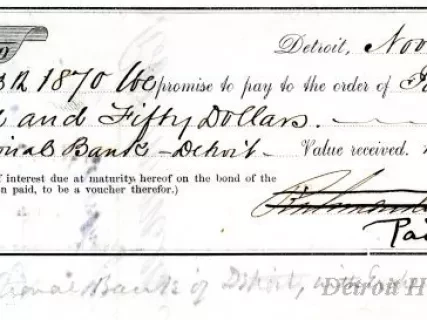 Detroit, Nov
1870 We promise to pay to the order of
and Fifty Dollars.
ional Bank - Detroit - Value received.
of interest due at maturity, hereof on the bond of the
n paid, to be a voucher therefor.)
Pai
ional Bank of Detroit,
Detroit H